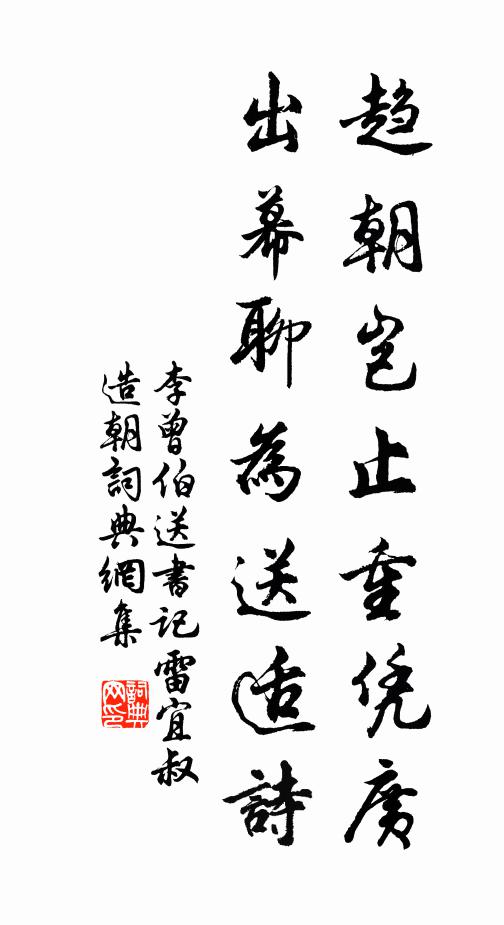 趋朝岂止重凭廣
出幕聊為送适詩
李曾伯送書記雷宜叔
造朝詞典網集
詞典网印